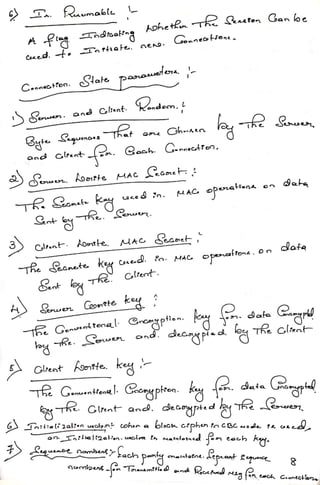 6) Is Resumable :-
A flag Indicating whether The Session Can be
used to Initiate new Connections.
Connection State parameters :-
1) Server and Client Random :
Byte Sequences That are Chosen by The Server
and Client for Each Connection.
2) Server Write MAC Secret :
The Secrete Key used in MAC operations on data
Sent by The Server.
3) Client Write MAC Secret :
The Secrete key used in MAC operations on data
Sent by The Client.
4) Server Write key :
The Conventional Encryption key for data Encrypted
by The Server and decrypted by The Client
5) Client Write key :-
The Conventional Encryption key for data Encrypted
by The Client and decrypted by The Server
6) Initialization vectors : when a block cipher in CBC mode is used,
an Initialization vector is maintained for each key.
7) Sequence numbers :- Each party maintains Separate Sequence
numbers for Transmitted and Received Msg for each Connection
8